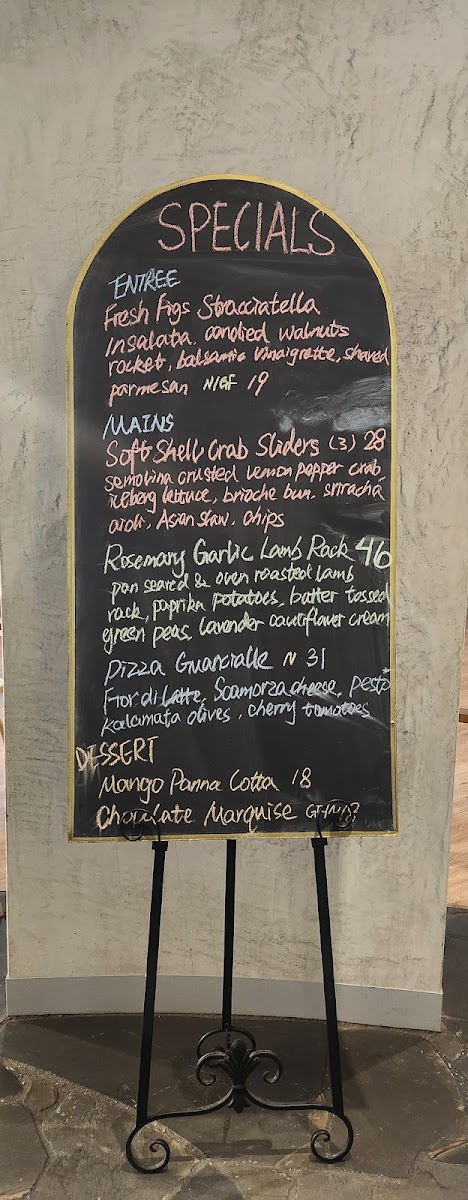 SPECIALS
ENTREE
Fresh Figs Stracciatella
Insalata, candied walnuts
rocket, balsamic vinaigrette, shaved
parmesan N/GF 19
MAINS
Soft Shell Crab Sliders (3) 28
semolina crusted lemon pepper crab,
iceberg lettuce, brioche bun, sriracha
aioli, Asian slaw, chips
Rosemary Garlic Lamb Rack 46
pan seared & oven roasted lamb
rack, paprika potatoes, butter tossed
green peas, lavender cauliflower cream
Pizza Guancialle N 31
Fior di Latte, Scamorza cheese, pesto
kalamata olives, cherry tomatoes
DESSERT
Mango Panna Cotta 18
Chocolate Marquise